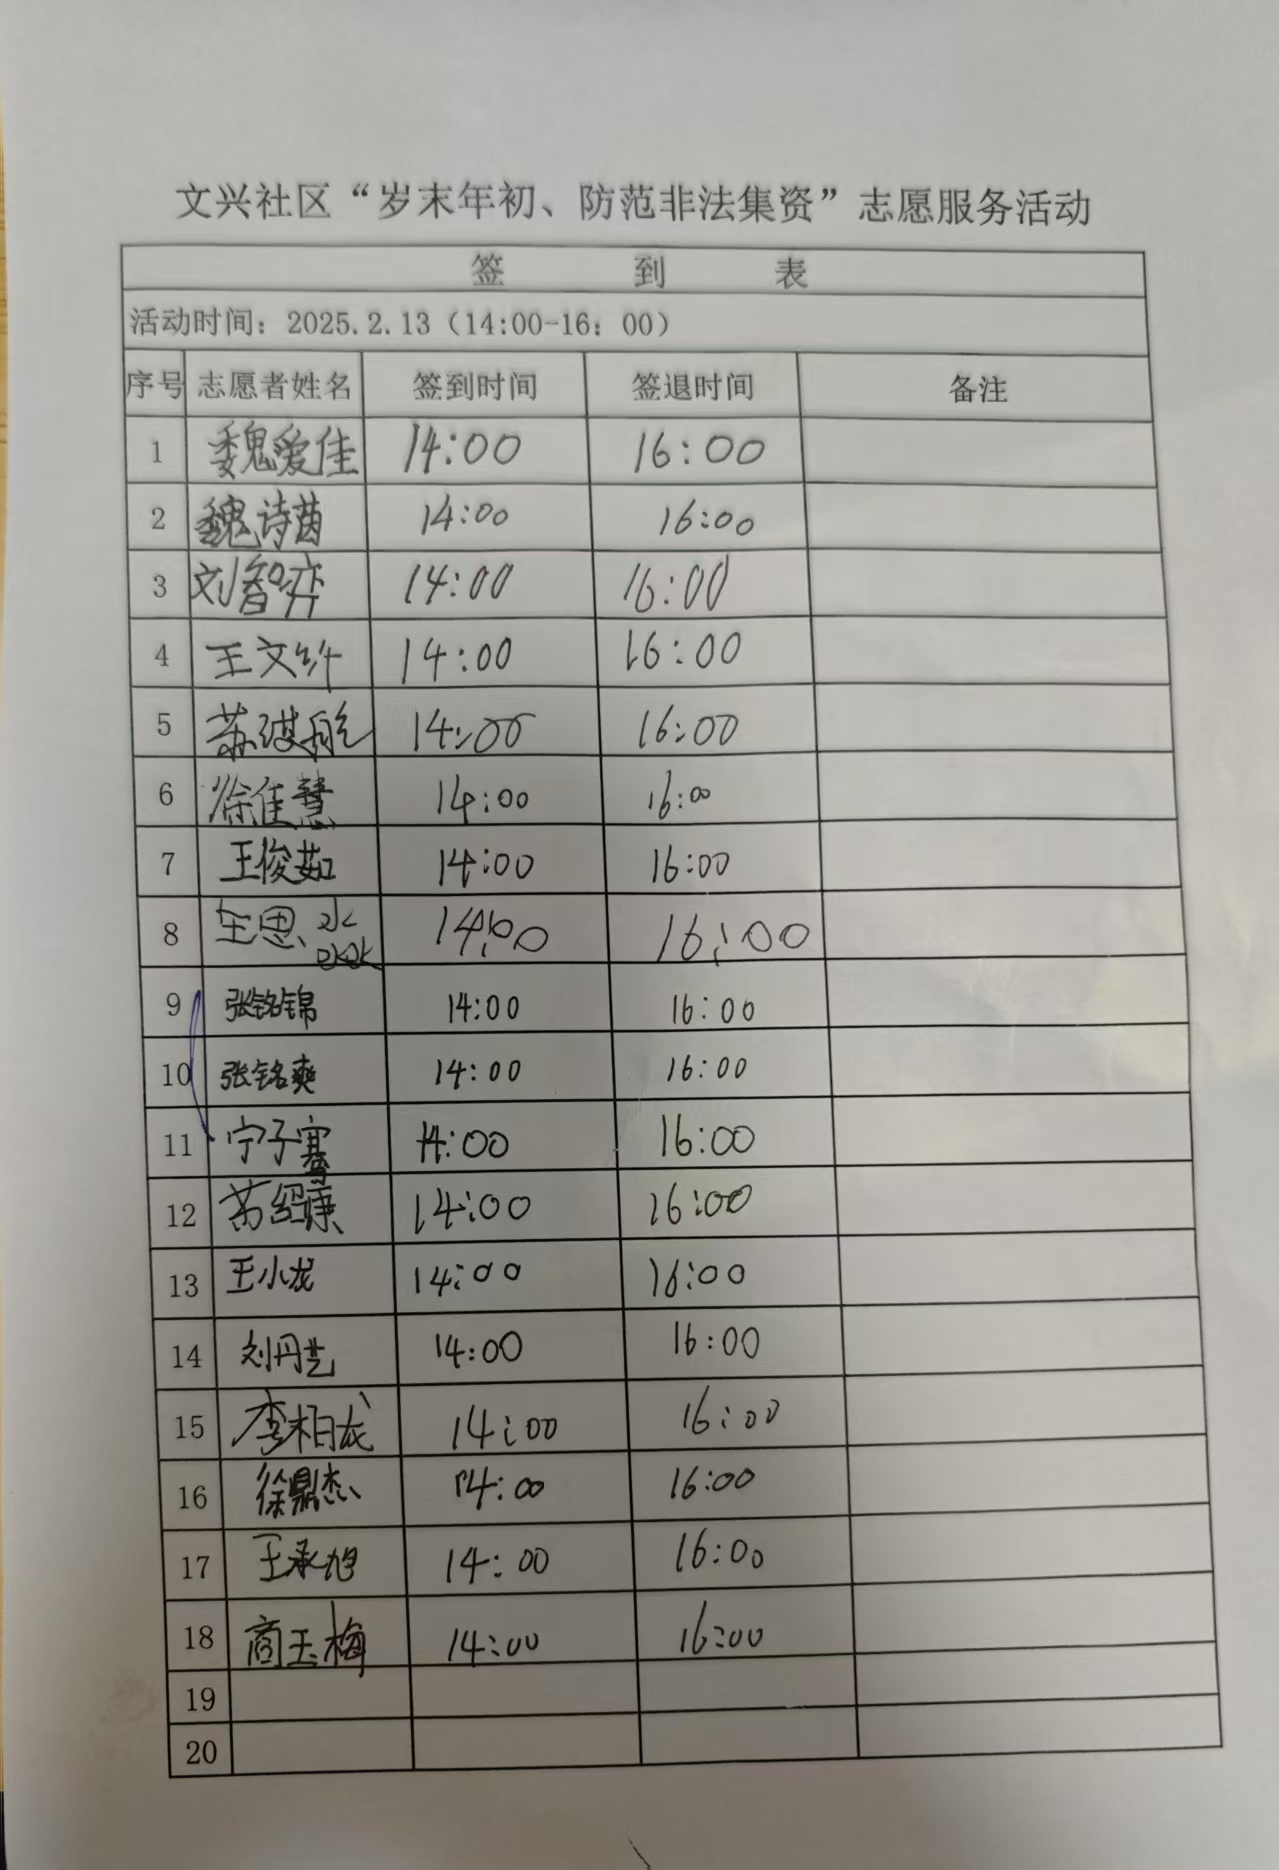 文兴社区“岁末年初、防范非法集资”志愿服务活动
签 到 表
活动时间：2025.2.13（14:00-16：00）
序号 志愿者姓名 签到时间 签退时间 备注
1 魏爱佳 14:00 16:00
2 魏诗茵 14:00 16:00
3 刘智弈 14:00 16:00
4 王文 14:00 16:00
5 苏 航 14:00 16:00
6 徐佳慧 14:00 16:00
7 王俊茹 14:00 16:00
8 王思淼 14:00 16:00
9 张铭锦 14:00 16:00
10 张铭爽 14:00 16:00
11 宁子骞 14:00 16:00
12 康 14:00 16:00
13 王小龙 14:00 16:00
14 刘丹艺 14:00 16:00
15 李相龙 14:00 16:00
16 徐鼎杰 14:00 16:00
17 王承旭 14:00 16:00
18 商玉梅 14:00 16:00
19
20